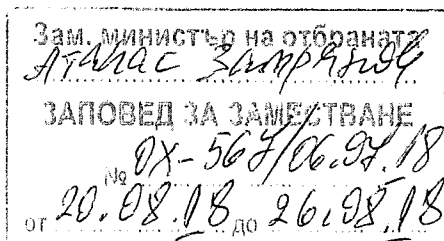 Зам. министър на отбраната
Атанас Запрянов
ЗАПОВЕД ЗА ЗАМЕСТВАНЕ
№ ОХ-567/06.07.18
от 20.08.18 до 26.08.18